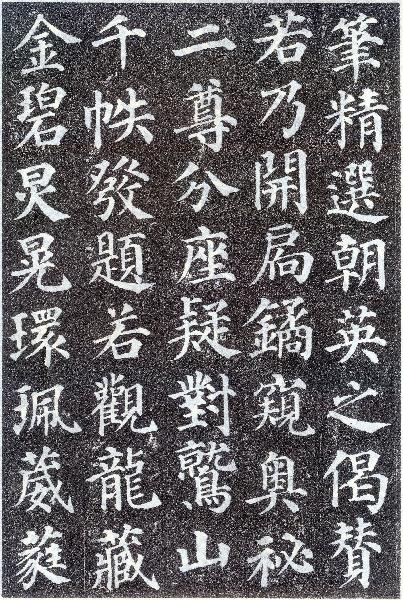 筆精選朝英之偈贊
若乃開扃鐍窺奧祕
二尊分座疑對鷲山
千帙發題若觀龍藏
金碧炅晃環珮葳蕤